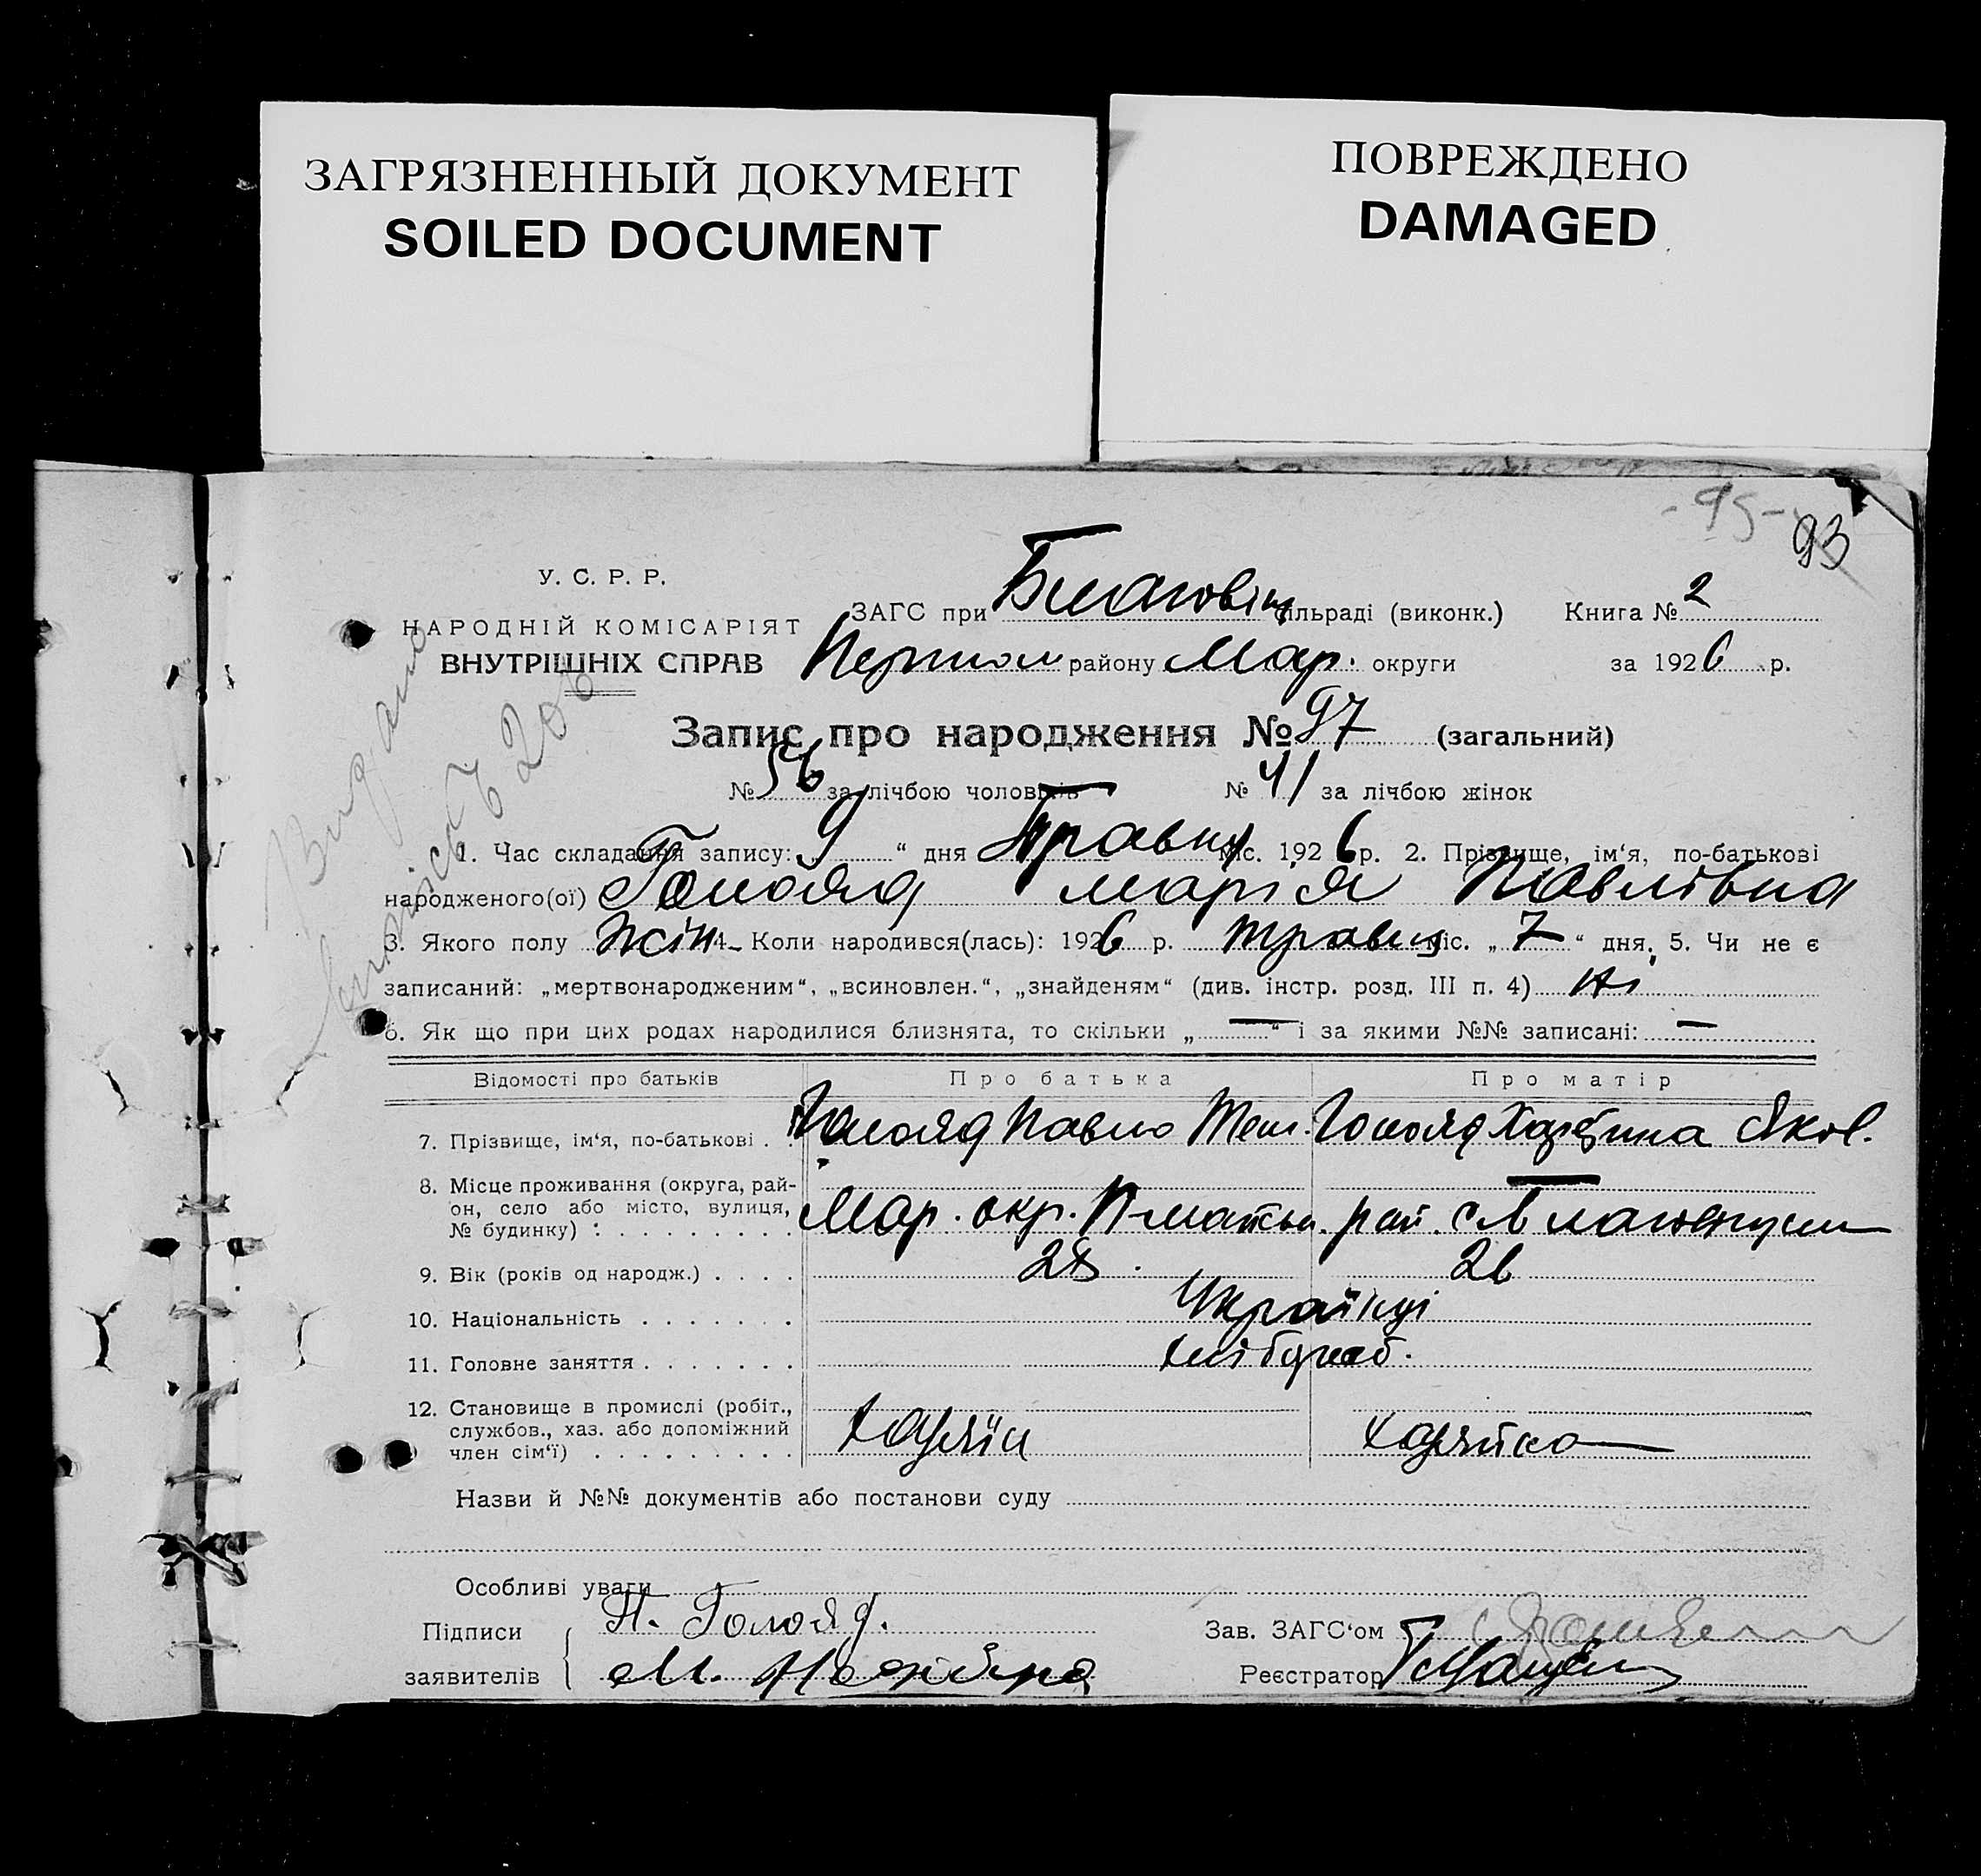 ЗАГРЯЗНЕННЫЙ ДОКУМЕНТ
SOILED DOCUMENT
ПОВРЕЖДЕНО
DAMAGED
- 95 -
93
У. С. Р. Р.
НАРОДНІЙ КОМІСАРІЯТ
ВНУТРІШНІХ СПРАВ
ЗАГС при Благовіщ сільраді (виконк.) Книга № 2
району Мар. округи за 1926 р.
Запис про народження № 97 (загальний)
№ 56 за лічбою чоловіків № 41 за лічбою жінок
1. Час складання запису: 9 “ дня Травня міс. 1926 р. 2. Прізвище, ім‘я, по-батькові
народженого(ої) Голояд Марія Павлівна
3. Якого полу Жін. 4. Коли народився(лась): 1926 р. травня міс. „ 7 “ дня. 5. Чи не є
записаний: „мертвонародженим“, „всиновлен.“, „знайденям“ (див. інстр. розд. III п. 4) Ні
6. Як що при цих родах народилися близнята, то скільки „ — “ і за якими №№ записані: —
Відомості про батьків Про батька Про матір
7. Прізвище, ім‘я, по-батькові . . Голояд Павло Голояд Яков.
8. Місце проживання (округа, рай-
он, село або місто, вулиця,
№ будинку) : . . . . . . . . . Мар. окр. рай. с.
9. Вік (років од народж.) . . . . 28 26
10. Національність . . . . . . . Українці
11. Головне заняття . . . . . . . хлібороб.
12. Становище в промислі (робіт.,
службов., хаз. або допоміжний
член сім‘ї) . . . . . . . . . Хазяїн хазяйка
Назви й №№ документів або постанови суду
Особливі уваги
Підписи П. Голояд. Зав. ЗАГС‘ом
заявителів М. Реєстратор
Видано